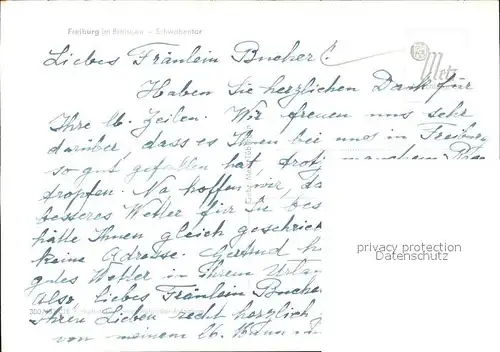 Freiburg im Breisgau – Schwabentor
Metz
Liebes Fräulein Bucher!
Haben Sie herzlichen Dank für
Ihre lb. Zeilen. Wir freuen uns sehr
darüber, dass es Ihnen bei uns in Freiburg
so gut gefallen hat, trotz manchem
tropfen. Na hoffen wir, da
besseres Wetter für Sie bes
hätte Ihnen gleich geschrie
keine Adresse. Gertrud h
gutes Wetter in ihrem Urla
Also, liebes Fräulein Bucher
Ihren Lieben recht herzlich
von meinem lb. Mann
privacy protection
Datenschutz